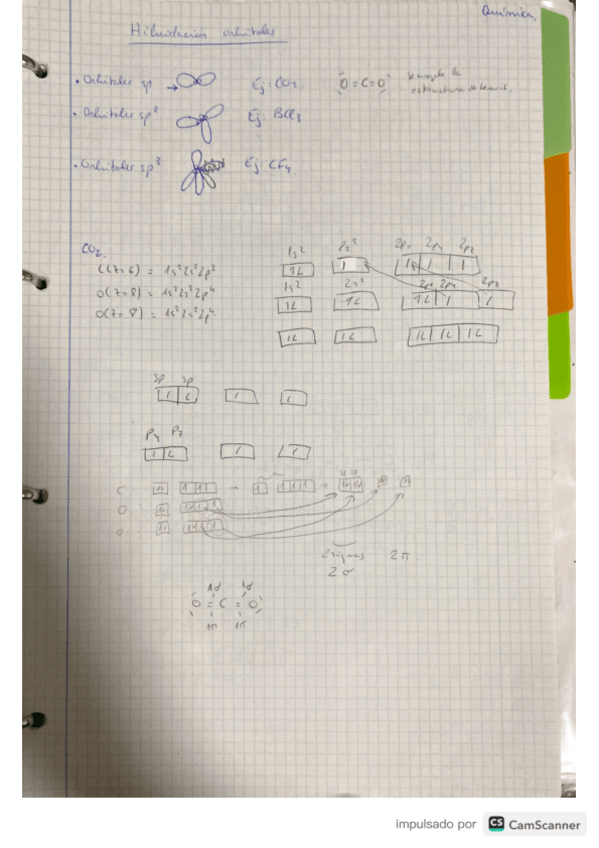 Química
Hibridación orbitales
· Orbitales sp Ej: CO2 O=C=O se cumple la
estructura de Lewis.
· Orbitales sp² Ej: BCl3
· Orbitales sp³ Ej: CF4
CO2
C(Z=6) = 1s²2s²2p²
O(Z=8) = 1s²2s²2p⁴
O(Z=8) = 1s²2s²2p⁴
1s² 2s² 2px 2py 2pz
1s² 2s² 2px 2py 2pz
sp sp
Py Pz
C
O
O
2 sigmas 2 π
2 σ
1σ 1σ
O=C=O
1π 1π
impulsado por CS CamScanner